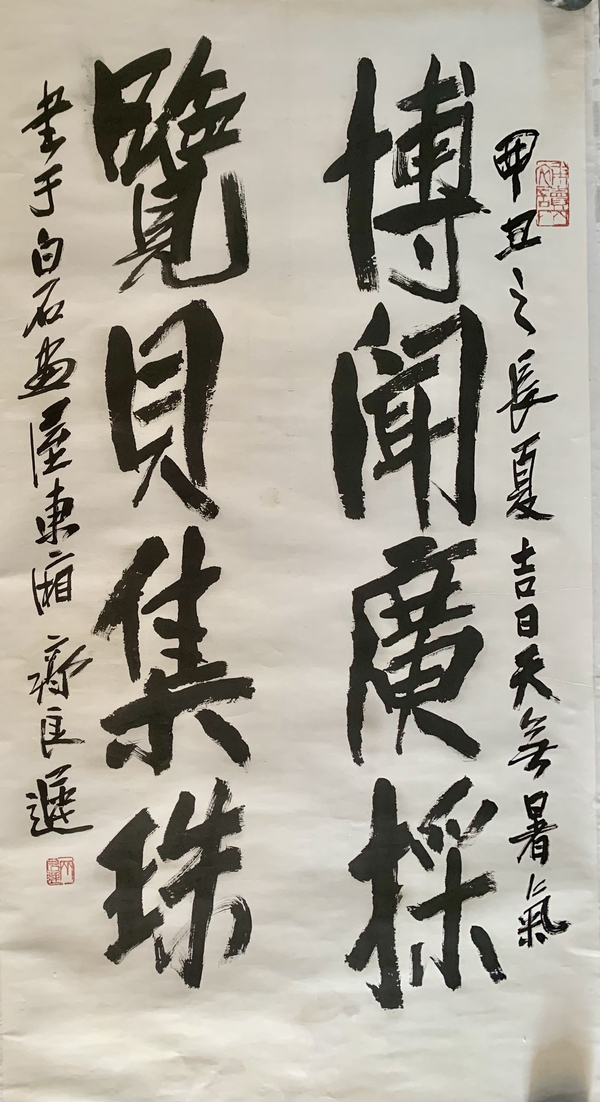 丑之長夏吉日天無暑氣
博聞廣採
覽貝集珠
書于白石畫屋東廂 齊良遲